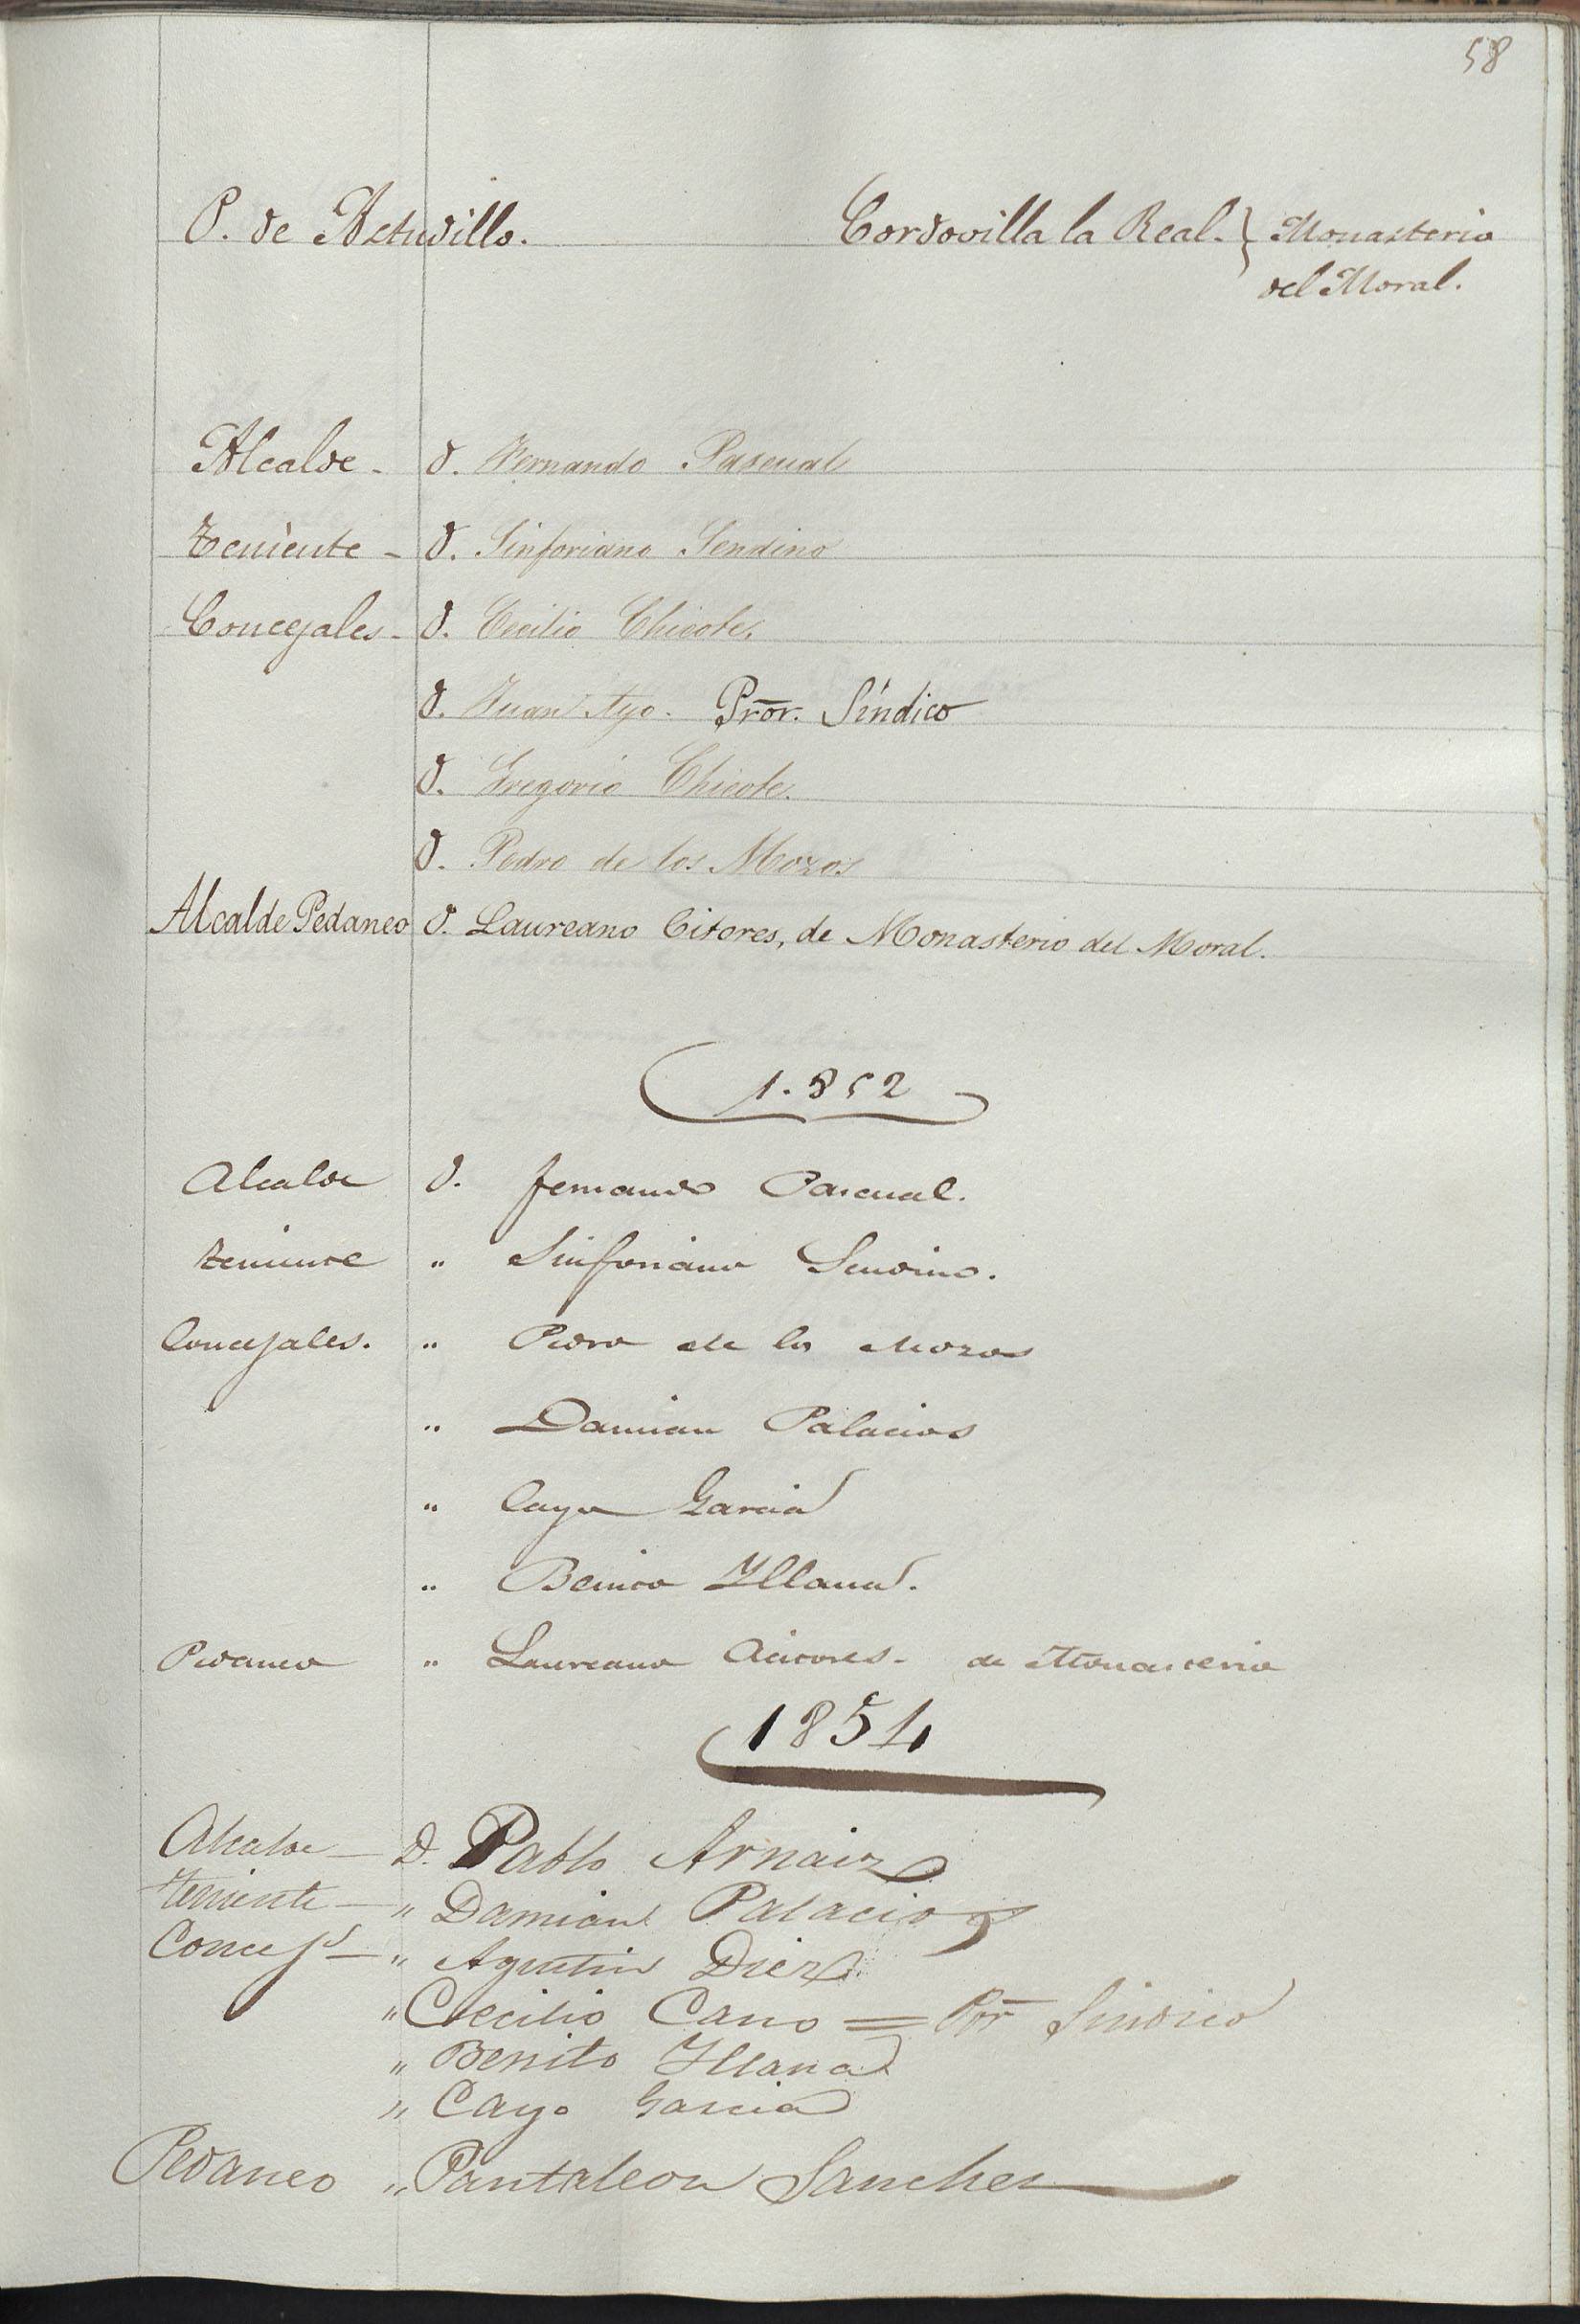 58
P. de Astudillo. Cordovilla la Real. } Monasterio
del Moral.
Alcalde - D. Fernando Pascual
Teniente - D. Sinforiano Sendino
Concejales - D. Cecilio Chicote.
D. Juan Ayo. Pror. Síndico
D. Gregorio Chicote.
D. Pedro de los Mozos
Alcalde Pedaneo D. Laureano Citores, de Monasterio del Moral.
1.852
Alcalde D. Fernando Pascual.
Teniente " Sinforiano Sendino.
Concejales. " Pedro de los Mozos
" Damian Palacios
" Cayo Garcia
" Benito Yllana.
Pedaneo " Laureano Acitores - de Monasterio
1854
Alcalde - D. Pablo Arnaiz
Teniente - " Damian Palacios
Concejs - " Agustin Diez
" Cecilio Cano = Por Sindico
" Benito Yllana
" Cayo Garcia
Pedaneo " Pantaleon Sanchez